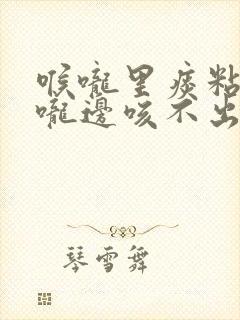 喉嚨里痰粘
嚨邊咳不出
琴雪舞